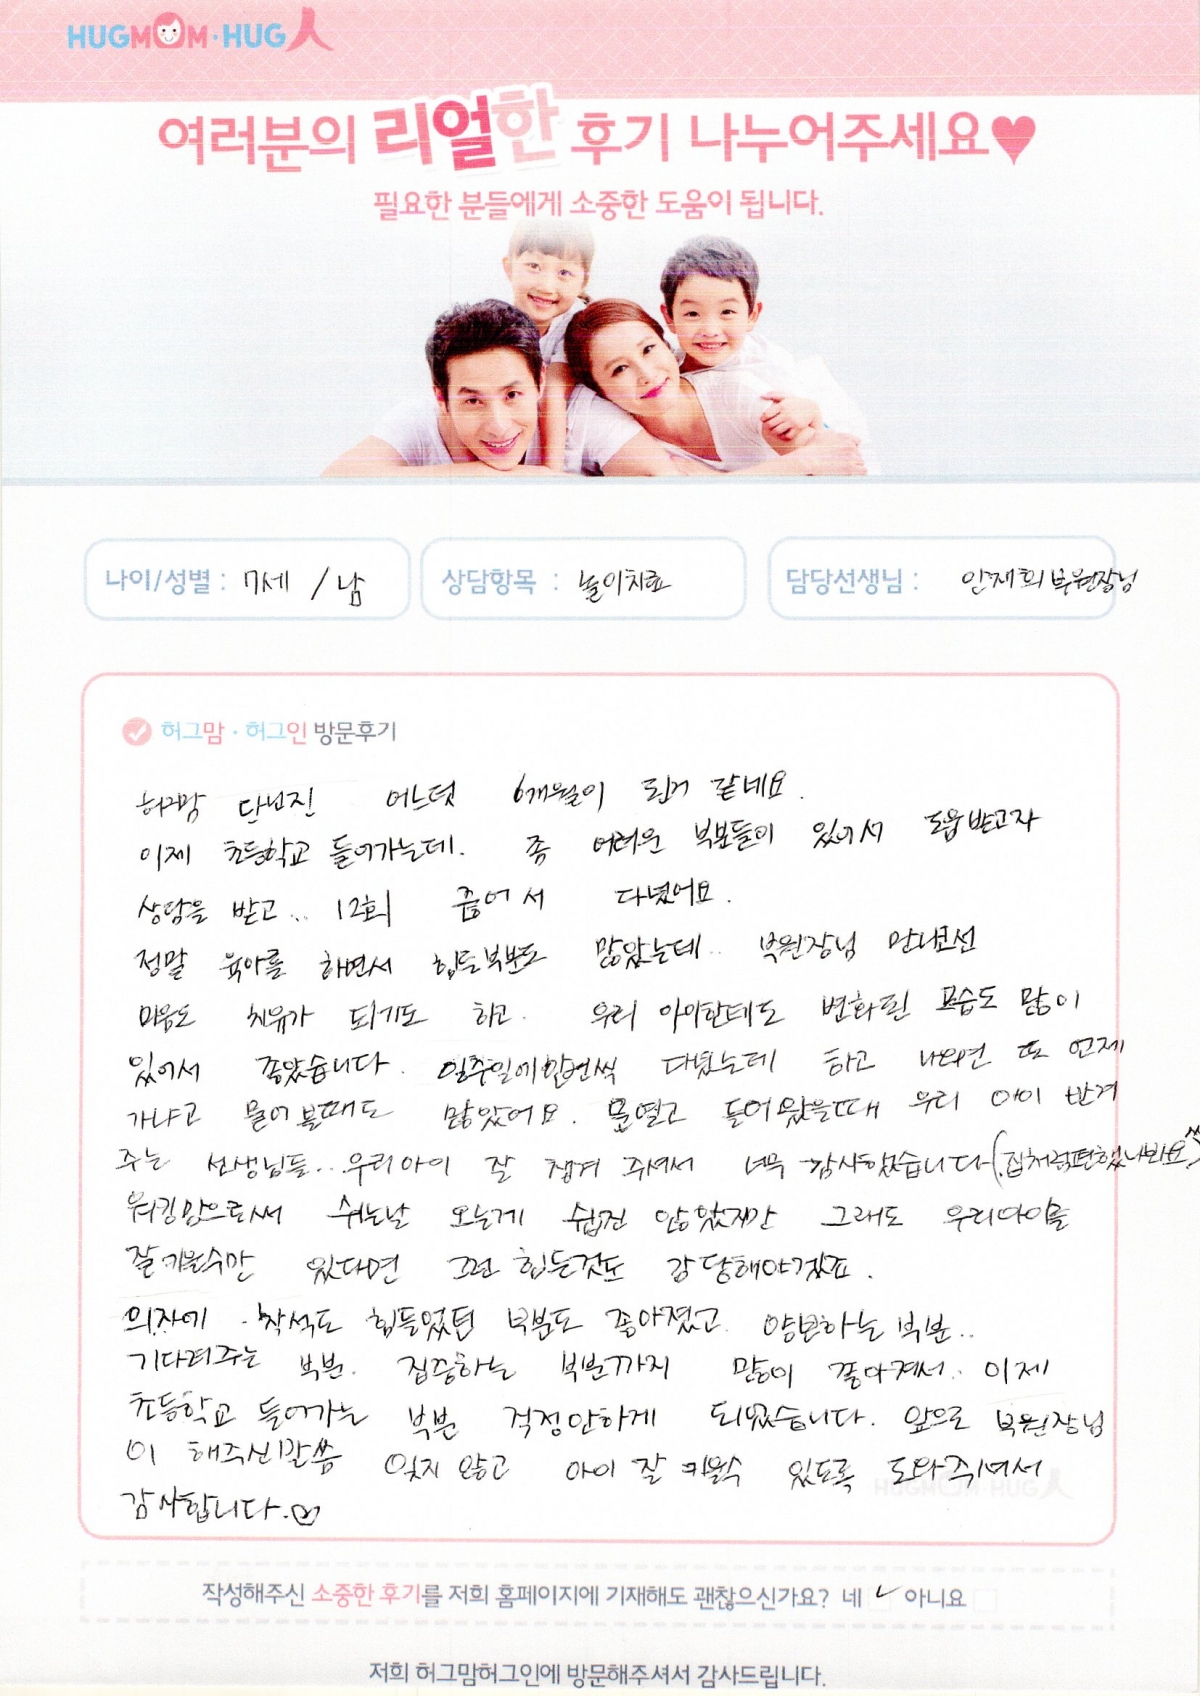 HUGMOM·HUG人
여러분의 리얼한 후기 나누어주세요♥
필요한 분들에게 소중한 도움이 됩니다.
나이/성별 : 7세 / 남
상담항목 : 놀이치료
담당선생님 : 안재희 부원장님
허그맘·허그인 방문후기
허그맘 다닌진 어느덧 6개월이 된거 같네요.
이제 초등학교 들어가는데. 좀 어려운 부분들이 있어서 도움받고자
상담을 받고.. 12회 줍어서 다녔어요.
정말 육아를 하면서 힘든부분도 많았는데.. 부원장님 만나고선
마음도 치유가 되기도 하고. 우리 아이한테도 변화된 모습도 많이
있어서 좋았습니다. 일주일에 한번씩 다녔는데 하고 나오면 또 언제
가냐고 물어볼때도 많았어요. 문열고 들어왔을때 우리 아이 반겨
주는 선생님들.. 우리아이 잘 챙겨 주셔서 너무 감사했습니다(집처럼편했나봐요^^)
워킹맘으로써 쉬는날 오는게 쉽진 않았지만 그래도 우리아이를
잘키울수만 있다면 그런 힘든것도 감당해야겠죠.
의자에 착석도 힘들었던 부분도 좋아졌고. 양보하는 부분..
기다려주는 부분. 집중하는 부분까지 많이 좋아져서.. 이제
초등학교 들어가는 부분 걱정안하게 되었습니다. 앞으로 부원장님
이 해주신말씀 잊지 않고 아이 잘 키울수 있도록 도와주셔서
감사합니다.♡
HUGMOM·HUG人
작성해주신 소중한 후기를 저희 홈페이지에 기재해도 괜찮으신가요? 네 ✓ 아니요
저희 허그맘허그인에 방문해주셔서 감사드립니다.